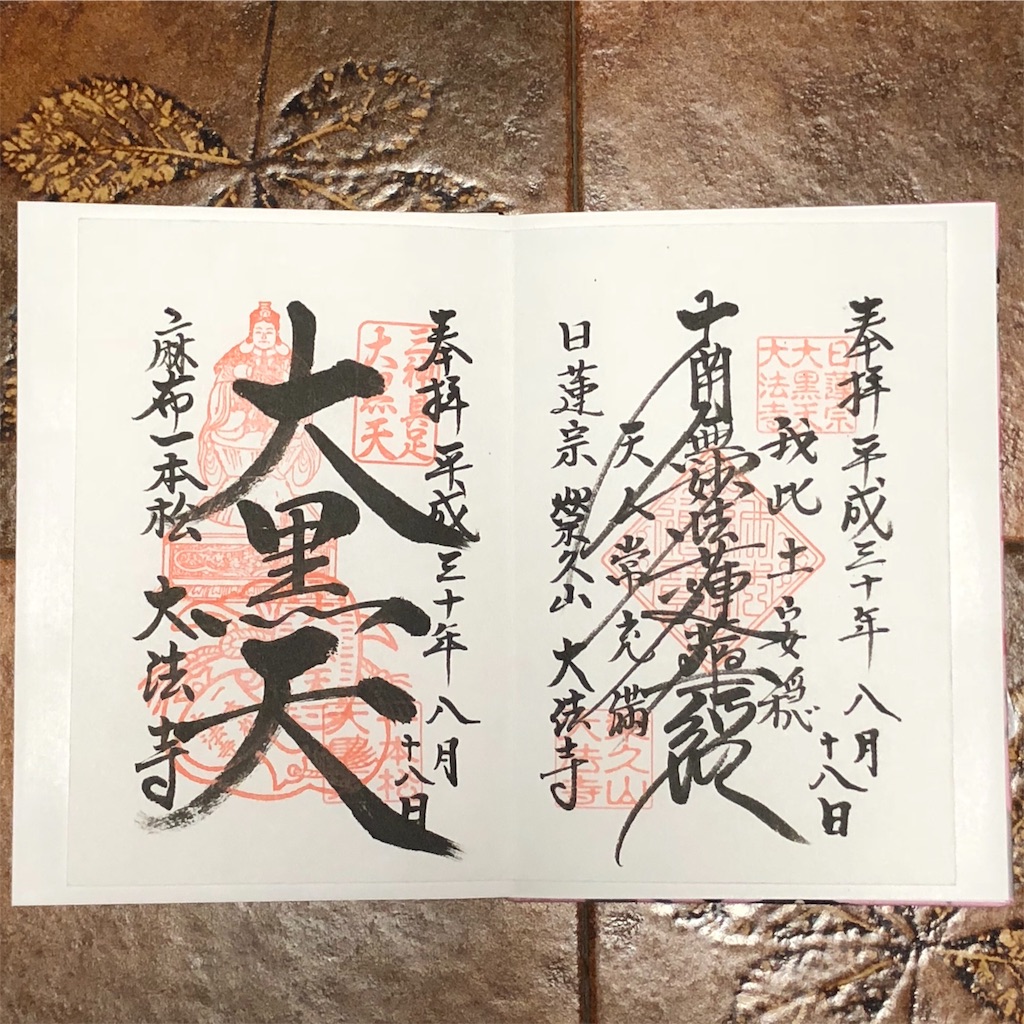 奉拝 平成三十年 八月十八日
日蓮宗
大黒天
大法寺
我此土安穏
南無妙法蓮華経
天人常充満
日蓮宗 榮久山 大法寺
奉拝 平成三十年 八月十八日
三神具足
大黒天
大黒天
麻布一本松 大法寺